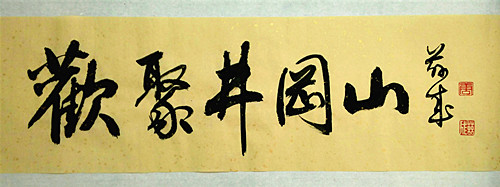 歡聚井岡山